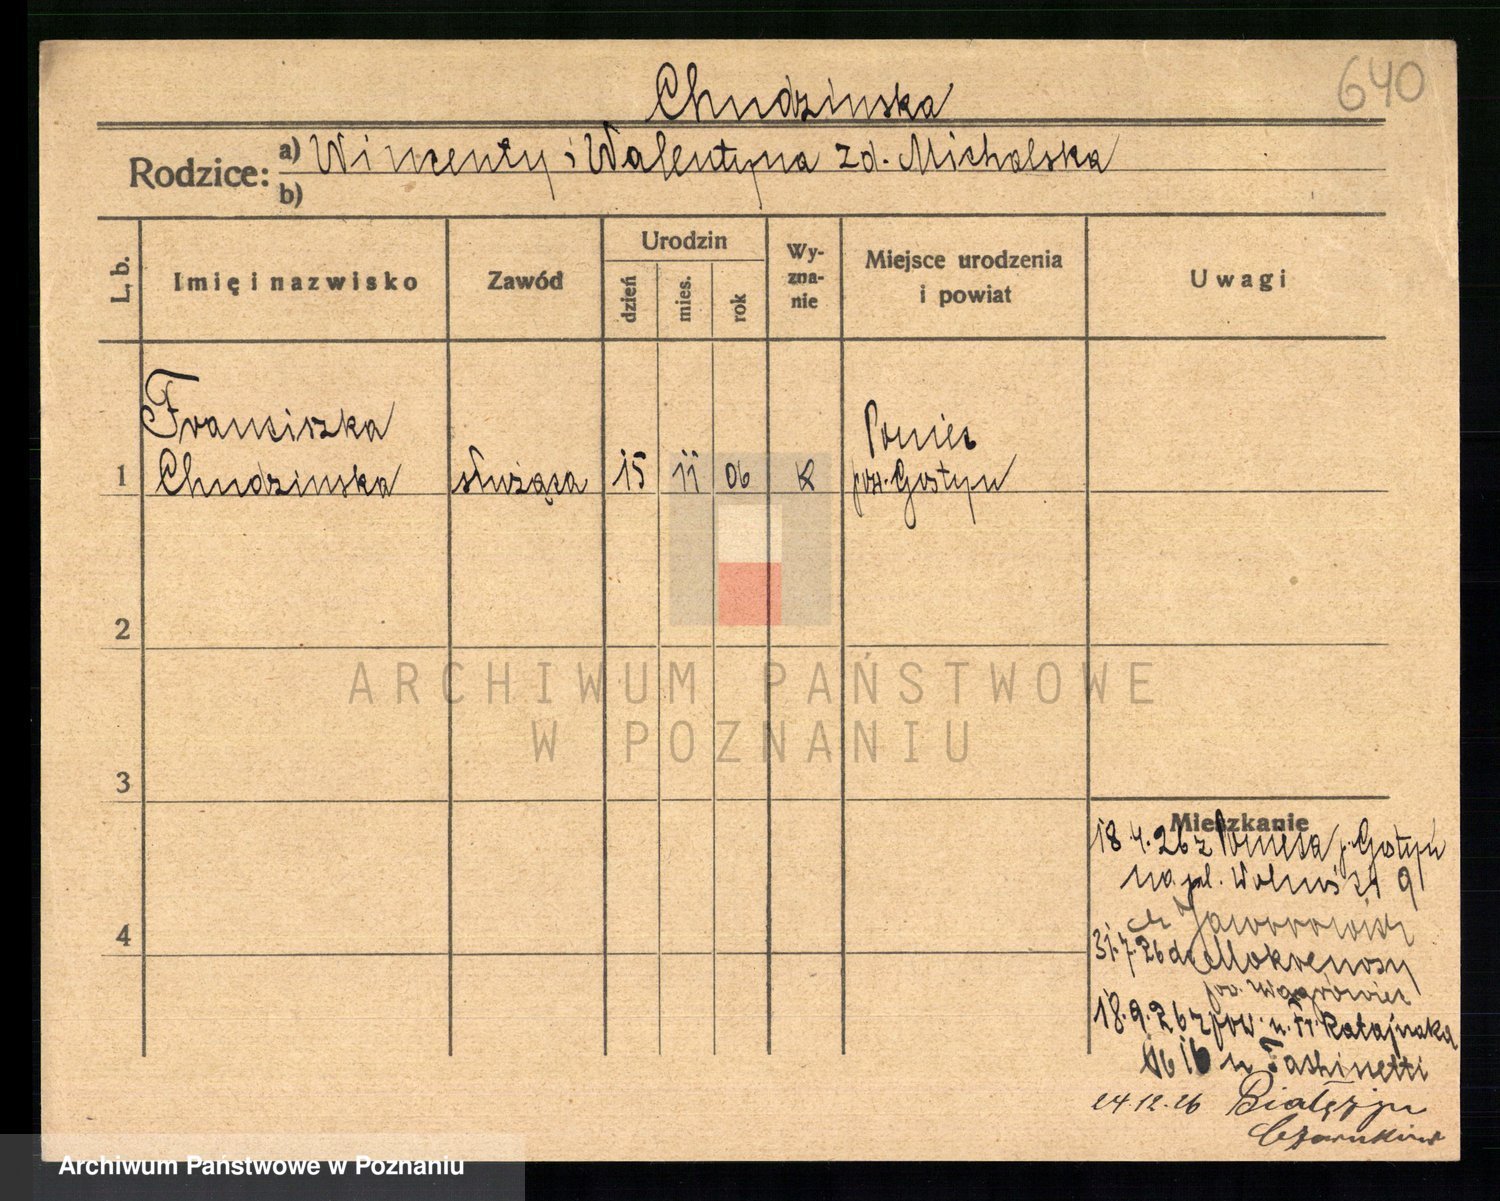 640
Chudzinska
Rodzice: a) Wincenty i Walentyna zd. Michalska
b)
L. b.
Imię i nazwisko
Zawód
Urodzin
dzień
mies.
rok
Wy-
zna-
nie
Miejsce urodzenia
i powiat
Uwagi
Franciszka
1 Chudzinska służąca 15 11 06 K Poniec
pow. Gostyn
2
3
4
ARCHIWUM PAŃSTWOWE
W POZNANIU
Mieszkanie
18.4.26 z Ponieca p. Gostyń
na pl. Wolności 9
31.7.26 do Mokronosy
pow. Wągrówiec
18.9.26 z pow. u. Fr. Ratajczaka
16 u
24.12.26 Białężyn
Czarnków
Archiwum Państwowe w Poznaniu